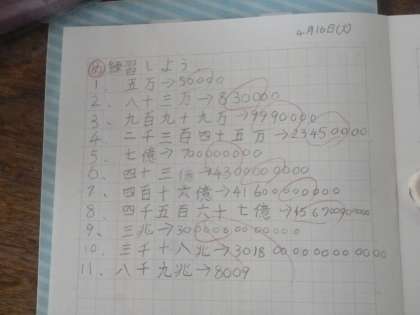 4月16日(火)
め 練習しよう
1、五万→50000
2、八十三万→830000
3、九百九十九万→9990000
4、二千三百四十五万→23450000
5、七億→700000000
6、四十三億→4300000000
7、四百十六億→41600000000
8、四千五百六十七億→456700000000
9、三兆→3000000000000
10、三千十八兆→3018000000000000
11、八千九兆→8009